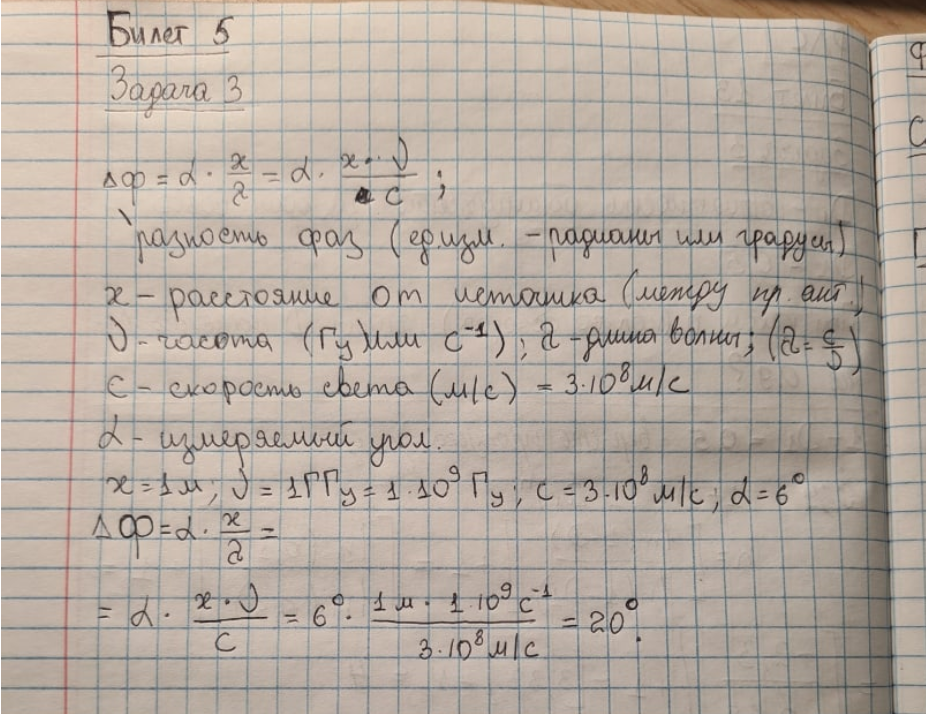 Билет 5
Задача 3
Δφ = α · x/λ = α · x · ν/c ;
разность фаз (ед.изм. - радианы или градусы)
x - расстояние от источника (между пр. ант.)
ν - частота (Гц) или с⁻¹) ; λ - длина волны ; (λ = c/ν)
c - скорость света (м/с) = 3·10⁸ м/с
α - измеряемый угол.
x = 1 м ; ν = 1 ГГц = 1·10⁹ Гц ; c = 3·10⁸ м/с ; α = 6°
Δφ = α · x/λ =
= α · x · ν/c = 6° · 1 м · 1·10⁹ с⁻¹/3·10⁸ м/с = 20°.